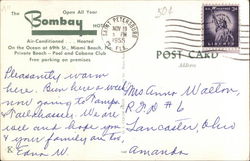 The
Open All Year
Bombay
HOTEL
Air-Conditioned . . . Heated
On the Ocean at 69th St., Miami Beach,
Private Beach — Pool and Cabana Club
Free parking on premises
SAINT PETERSBURG
NOV 19
PM
1955
FLA.
50¢
POST CARD
Pleasantly warm
here. Been here a week
now going to Tampa
Tallahassee. We are
well and hope you
& your family are too,
Edna W.
Mrs Anna Walton
R.F.D. # 6
Lancaster, Ohio
Amanda